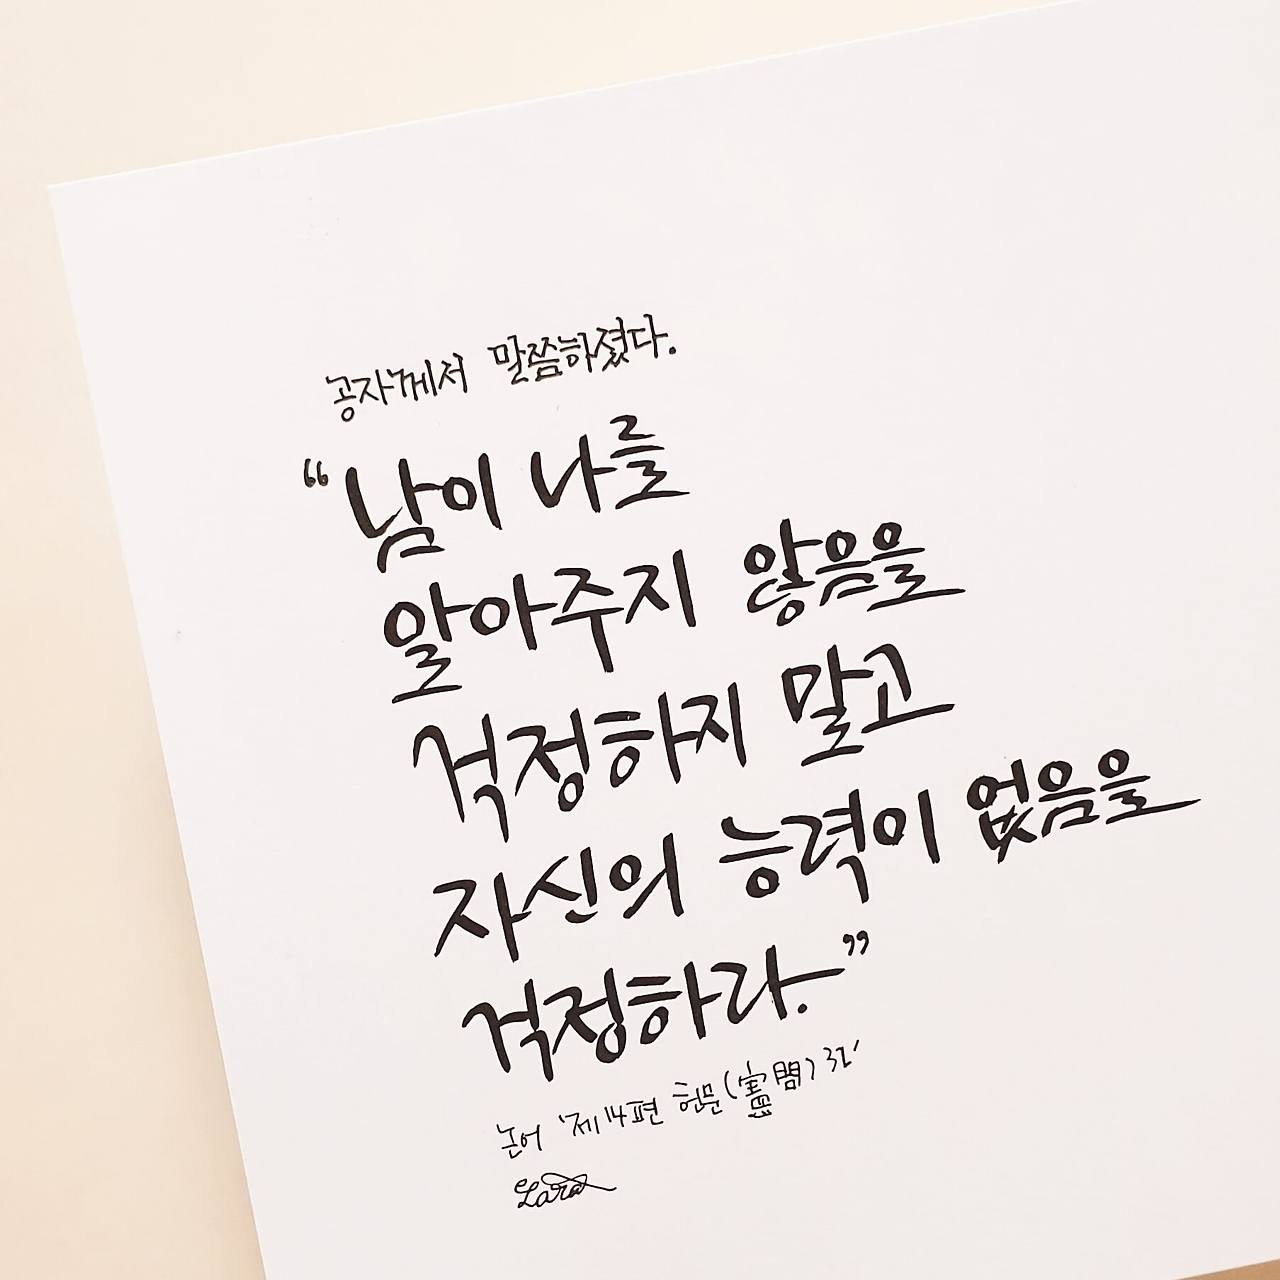 공자께서 말씀하셨다.
“남이 나를
알아주지 않음을
걱정하지 말고
자신의 능력이 없음을
걱정하라.”
논어 '제14편 헌문(憲問) 32'
Lara